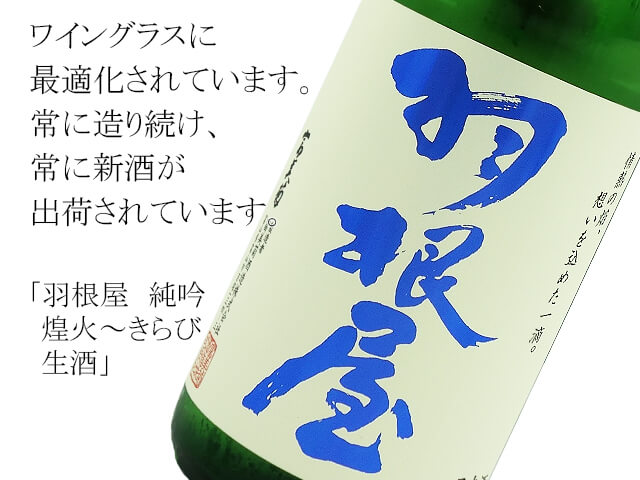 ワイングラスに
最適化されています。
常に造り続け、
常に新酒が
出荷されています
「羽根屋　純吟
煌火～きらび
生酒」
羽根屋
情熱の焔、
想いを込めた一滴。